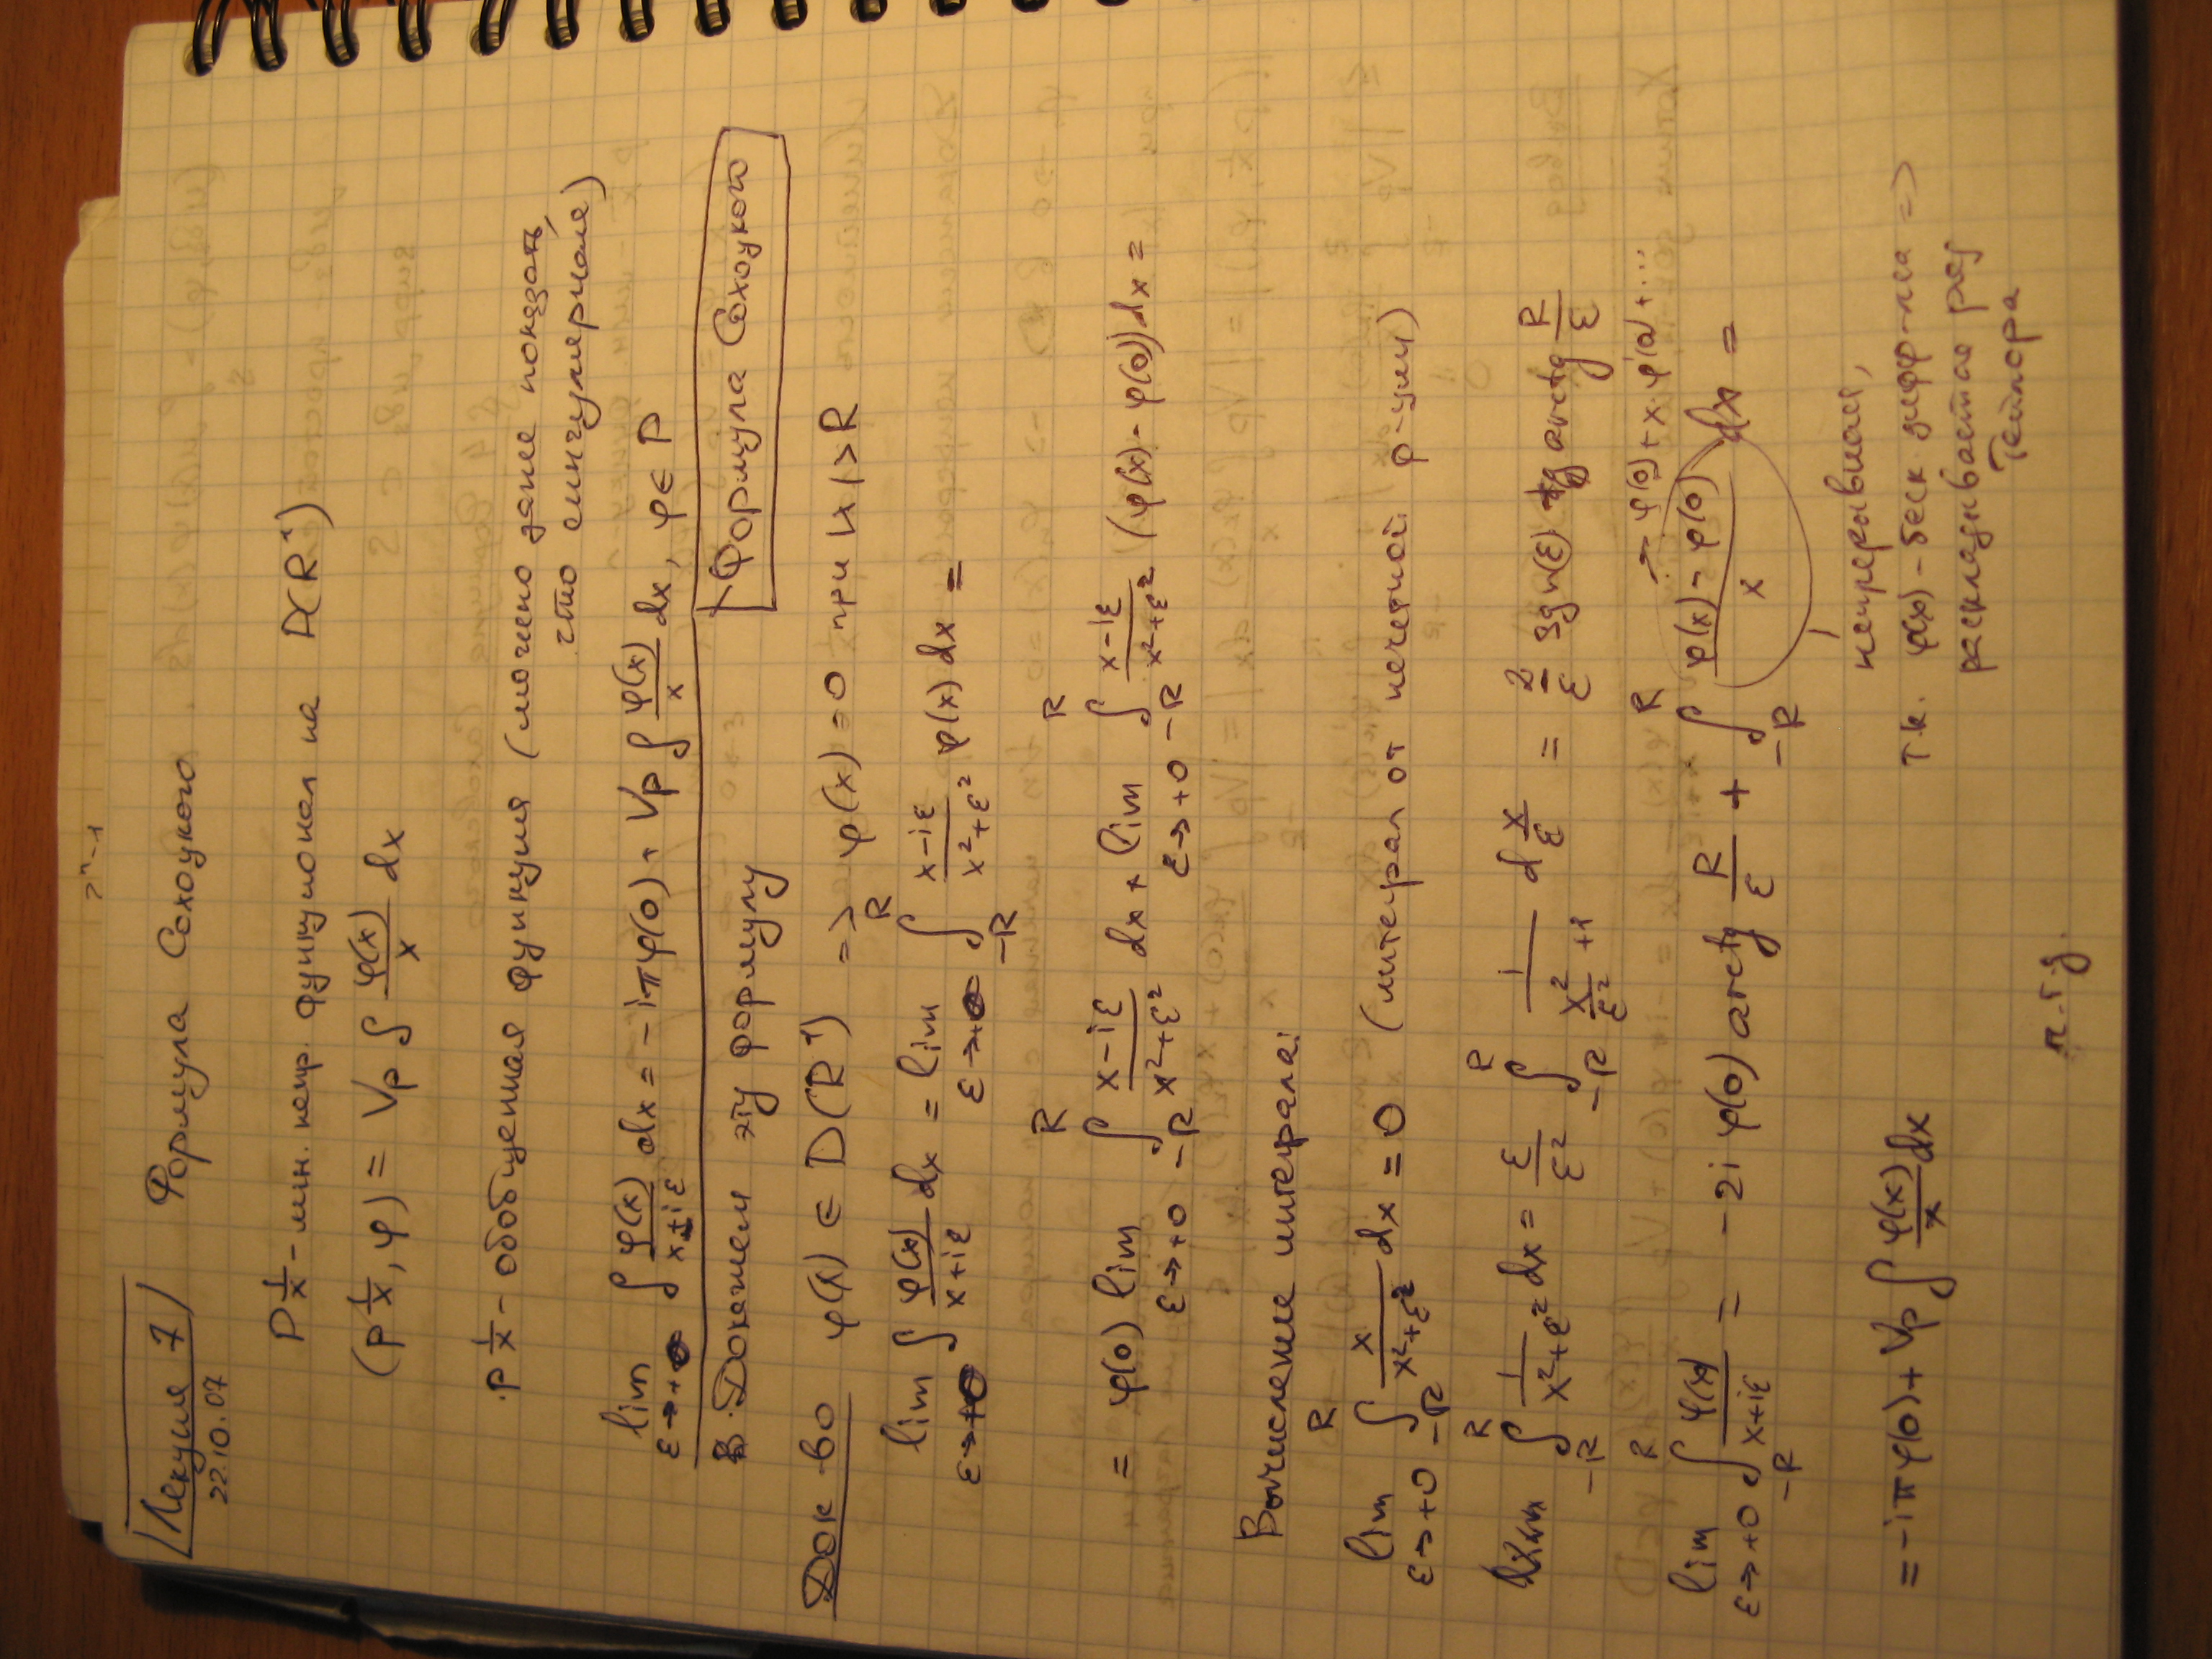 Лекция 7
22.10.07
Формула Сохоцкого.
P 1/x - лин. непр. функционал на D(R¹)
(P 1/x, φ) = Vp ∫ φ(x)/x dx
P 1/x - обобщенная функция (можно даже показать,
что сингулярная)
lim ε→+0 ∫ φ(x)/(x+iε) dx = -iπφ(0) + Vp ∫ φ(x)/x dx, φ ∈ D
Формула Сохоцкого
Докажем эту формулу
Док-во φ(x) ∈ D(R¹) => φ(x) = 0 при |x| > R
lim ε→+0 ∫ φ(x)/(x+iε) dx = lim ε→+0 ∫_{-R}^{R} (x-iε)/(x²+ε²) φ(x) dx =
= φ(0) lim ε→+0 ∫_{-R}^{R} (x-iε)/(x²+ε²) dx + lim ε→+0 ∫_{-R}^{R} (x-iε)/(x²+ε²) (φ(x) - φ(0)) dx =
Вычисление интеграла:
lim ε→+0 ∫_{-R}^{R} x/(x²+ε²) dx = 0 (интеграл от нечетной ф-ции)
∫_{-R}^{R} 1/(x²+ε²) dx = ε/ε² ∫_{-R}^{R} 1/(x²/ε²+1) d x/ε = 2/ε sgn(ε) arctg R/ε
→ φ(0) + x·φ'(0) + ...
lim ε→+0 ∫_{-R}^{R} φ(x)/(x+iε) = -2i φ(0) arctg R/ε + ∫_{-R}^{R} (φ(x) - φ(0))/x dx =
непрерывная,
т.к. φ(x) - беск. дифф-ма =>
раскладывается ряд
Тейлора
= -iπφ(0) + Vp ∫ φ(x)/x dx
ч.т.д.